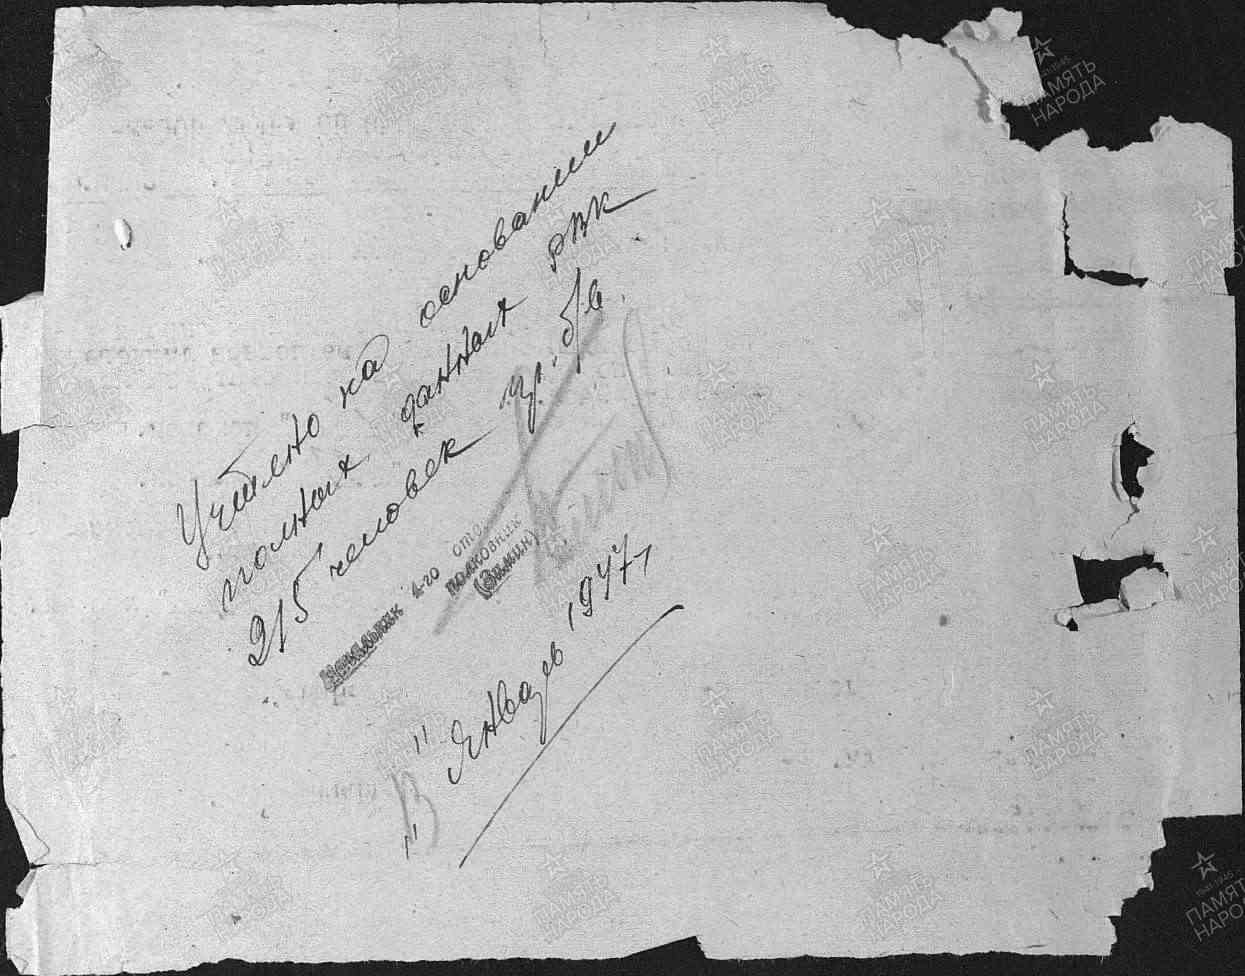 Учтено на основании
полных данных РВК
215 человек
Начальник 1-го отд.
полковник
(Зимин)
"13" Январь 1947
ПАМЯТЬ
НАРОДА
1941-1945